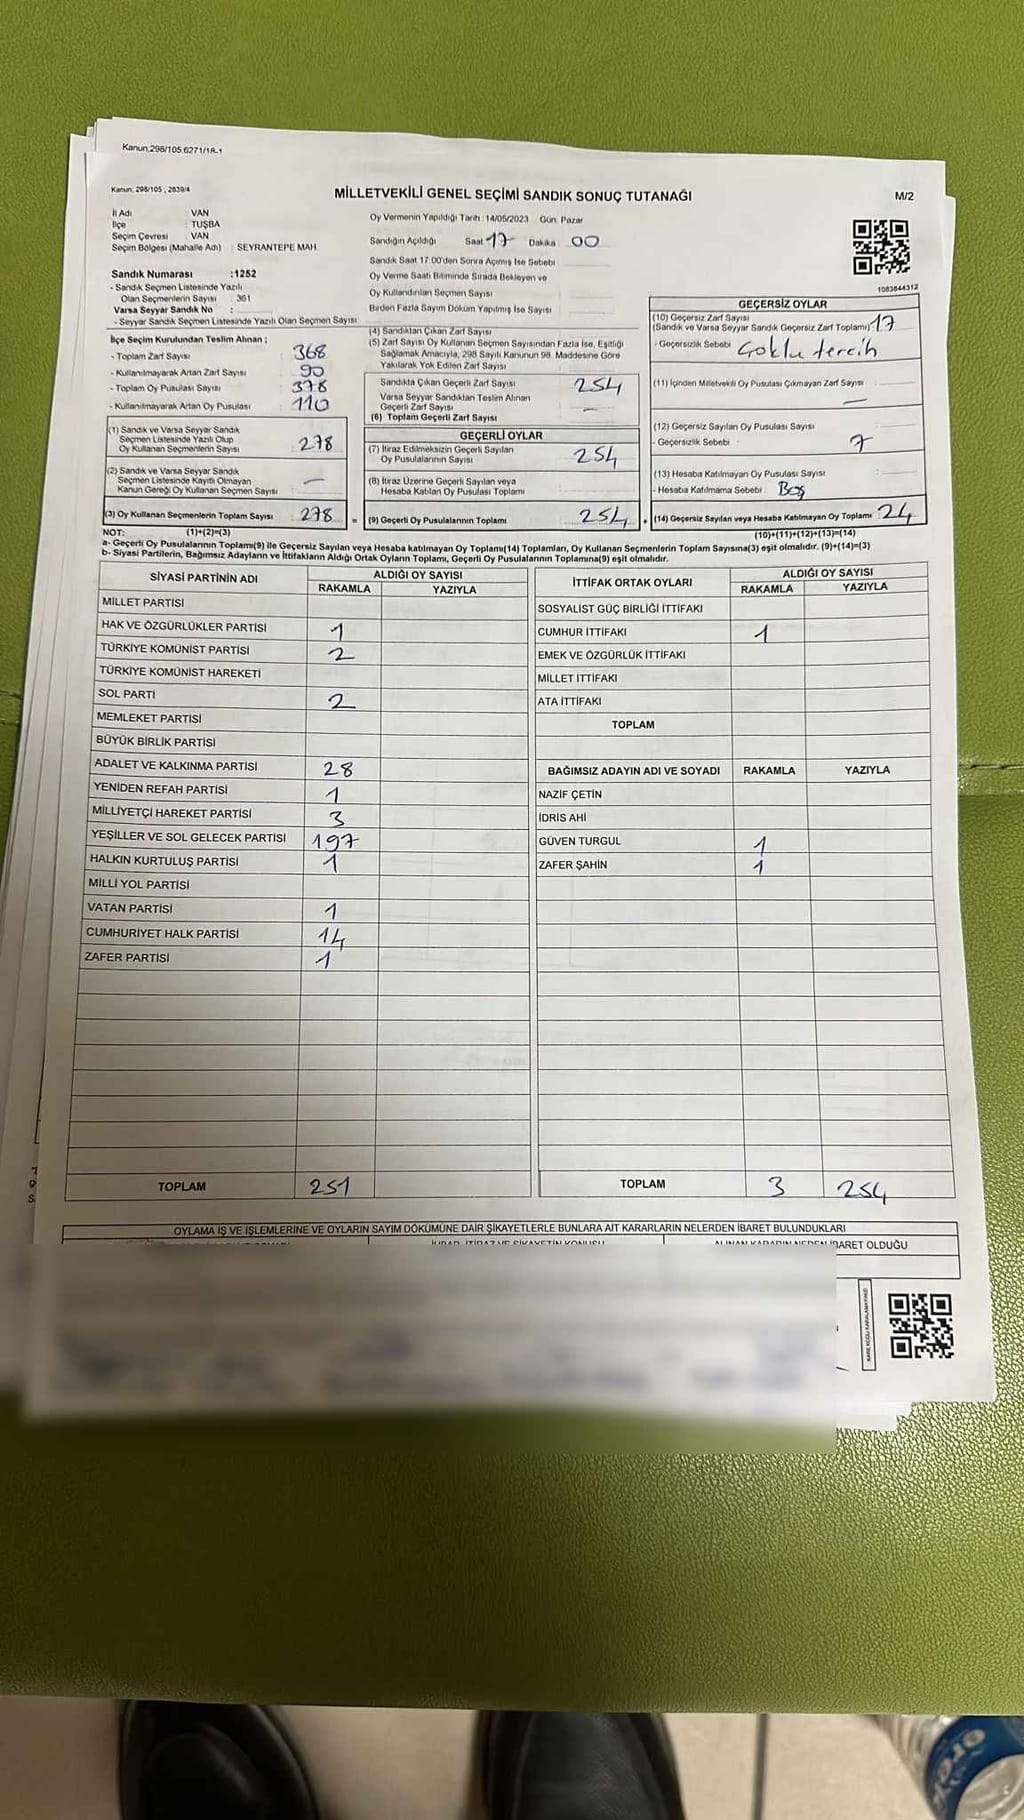 Kanun,298/105.6271/18-1
Kanun: 298/105 , 2839/4
MİLLETVEKİLİ GENEL SEÇİMİ SANDIK SONUÇ TUTANAĞI
M/2
İl Adı : VAN
İlçe : TUŞBA
Seçim Çevresi : VAN
Seçim Bölgesi (Mahalle Adı) : SEYRANTEPE MAH.
Oy Vermenin Yapıldığı Tarih :14/05/2023 Gün: Pazar
Sandığın Açıldığı Saat 17 Dakika 00
Sandık Saat 17.00'den Sonra Açımış İse Sebebi
Oy Verme Saati Bitiminde Sırada Bekleyen ve
Oy Kullandırılan Seçmen Sayısı
Birden Fazla Sayım Döküm Yapılmış İse Sayısı
Sandık Numarası :1252
- Sandık Seçmen Listesinde Yazılı
Olan Seçmenlerin Sayısı : 361
Varsa Seyyar Sandık No :
- Seyyar Sandık Seçmen Listesinde Yazılı Olan Seçmen Sayısı
1083844312
İlçe Seçim Kurulundan Teslim Alınan ;
- Toplam Zarf Sayısı 368
- Kullanılmayarak Artan Zarf Sayısı 90
- Toplam Oy Pusulası Sayısı 378
- Kullanılmayarak Artan Oy Pusulası 110
(1) Sandık ve Varsa Seyyar Sandık
Seçmen Listesinde Yazılı Olup
Oy Kullanan Seçmenlerin Sayısı 278
(2) Sandık ve Varsa Seyyar Sandık
Seçmen Listesinde Kayıtlı Olmayan
Kanun Gereği Oy Kullanan Seçmen Sayısı —
(3) Oy Kullanan Seçmenlerin Toplam Sayısı 278 =
(4) Sandıktan Çıkan Zarf Sayısı
(5) Zarf Sayısı Oy Kullanan Seçmen Sayısından Fazla İse, Eşitliği
Sağlamak Amacıyla; 298 Sayılı Kanunun 98. Maddesine Göre
Yakılarak Yok Edilen Zarf Sayısı
Sandıkta Çıkan Geçerli Zarf Sayısı 254
Varsa Seyyar Sandıktan Teslim Alınan
Geçerli Zarf Sayısı —
(6) Toplam Geçerli Zarf Sayısı
GEÇERLİ OYLAR
(7) İtiraz Edilmeksizin Geçerli Sayılan
Oy Pusulalarının Sayısı 254
(8) İtiraz Üzerine Geçerli Sayılan veya
Hesaba Katılan Oy Pusulası Toplamı
(9) Geçerli Oy Pusulalarının Toplamı 254 +
GEÇERSİZ OYLAR
(10) Geçersiz Zarf Sayısı
(Sandık ve Varsa Seyyar Sandık Geçersiz Zarf Toplamı) 17
- Geçersizlik Sebebi : Çoklu tercih
(11) İçinden Milletvekili Oy Pusulası Çıkmayan Zarf Sayısı —
(12) Geçersiz Sayılan Oy Pusulası Sayısı
- Geçersizlik Sebebi : 7
(13) Hesaba Katılmayan Oy Pusulası Sayısı
- Hesaba Katılmama Sebebi : Boş
(14) Geçersiz Sayılan veya Hesaba Katılmayan Oy Toplamı 24
NOT: (1)+(2)=(3) (10)+(11)+(12)+(13)=(14)
a- Geçerli Oy Pusulalarının Toplamı(9) ile Geçersiz Sayılan veya Hesaba katılmayan Oy Toplamı(14) Toplamları, Oy Kullanan Seçmenlerin Toplam Sayısına(3) eşit olmalıdır. (9)+(14)=(3)
b- Siyasi Partilerin, Bağımsız Adayların ve İttifakların Aldığı Ortak Oyların Toplamı, Geçerli Oy Pusulalarının Toplamına(9) eşit olmalıdır.
SİYASİ PARTİNİN ADI ALDIĞI OY SAYISI
RAKAMLA YAZIYLA
MİLLET PARTİSİ
HAK VE ÖZGÜRLÜKLER PARTİSİ 1
TÜRKİYE KOMÜNİST PARTİSİ 2
TÜRKİYE KOMÜNİST HAREKETİ
SOL PARTİ 2
MEMLEKET PARTİSİ
BÜYÜK BİRLİK PARTİSİ
ADALET VE KALKINMA PARTİSİ 28
YENİDEN REFAH PARTİSİ 1
MİLLİYETÇİ HAREKET PARTİSİ 3
YEŞİLLER VE SOL GELECEK PARTİSİ 197
HALKIN KURTULUŞ PARTİSİ 1
MİLLİ YOL PARTİSİ
VATAN PARTİSİ 1
CUMHURİYET HALK PARTİSİ 14
ZAFER PARTİSİ 1
TOPLAM 251
İTTİFAK ORTAK OYLARI ALDIĞI OY SAYISI
RAKAMLA YAZIYLA
SOSYALİST GÜÇ BİRLİĞİ İTTİFAKI
CUMHUR İTTİFAKI 1
EMEK VE ÖZGÜRLÜK İTTİFAKI
MİLLET İTTİFAKI
ATA İTTİFAKI
TOPLAM
BAĞIMSIZ ADAYIN ADI VE SOYADI RAKAMLA YAZIYLA
NAZİF ÇETİN
İDRİS AHİ
GÜVEN TURGUL 1
ZAFER ŞAHİN 1
TOPLAM 3 254
OYLAMA İŞ VE İŞLEMLERİNE VE OYLARIN SAYIM DÖKÜMÜNE DAİR ŞİKAYETLERLE BUNLARA AİT KARARLARIN NELERDEN İBARET BULUNDUKLARI
İHBAR, İTİRAZ VE ŞİKAYETİN KONUSU
ALINAN KARARIN NEDEN İBARET OLDUĞU